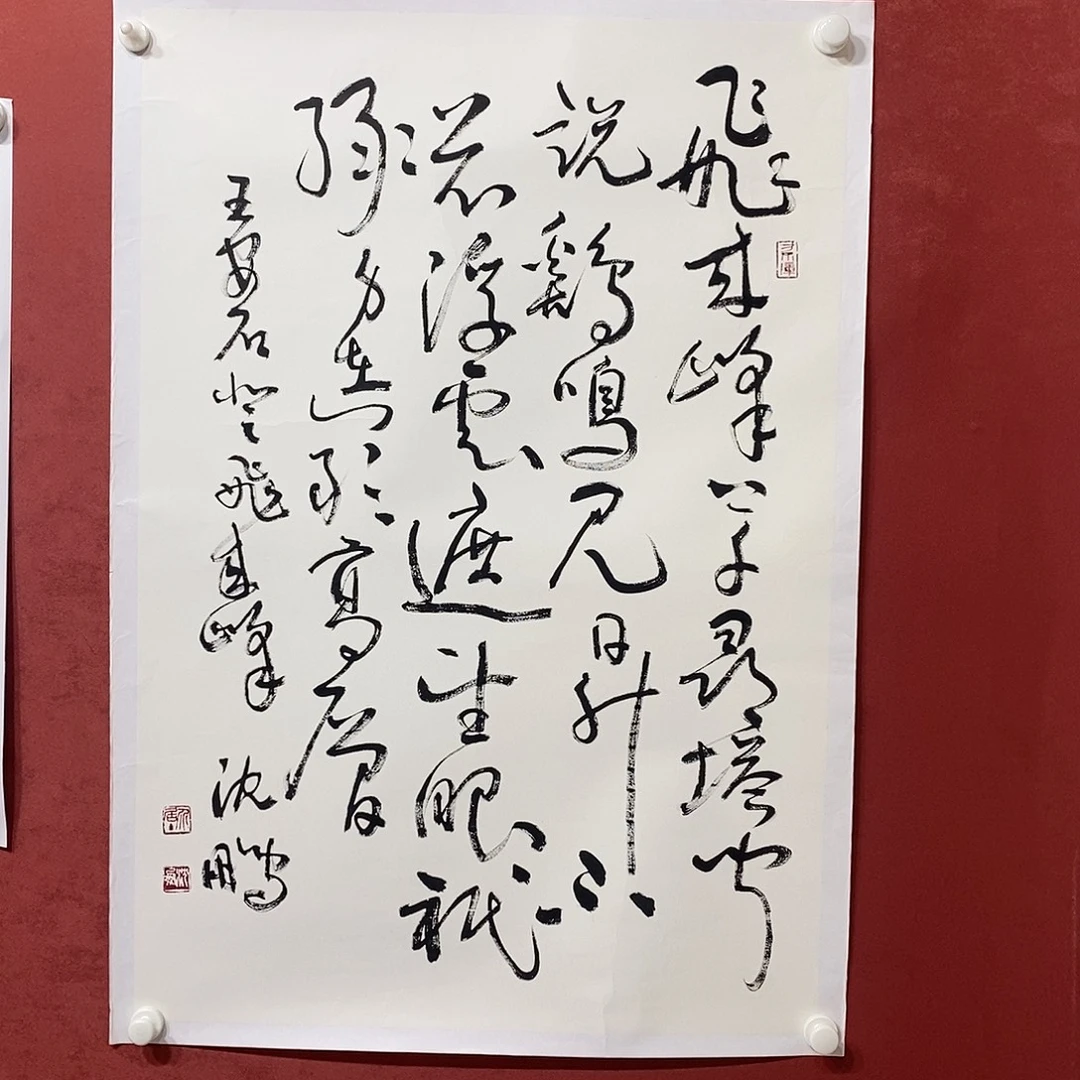 飛來峰上千尋塔聞
說鷄鳴見日升不
畏浮雲遮望眼祇
緣身在最高層
王安石登飛來峰 沈鵬